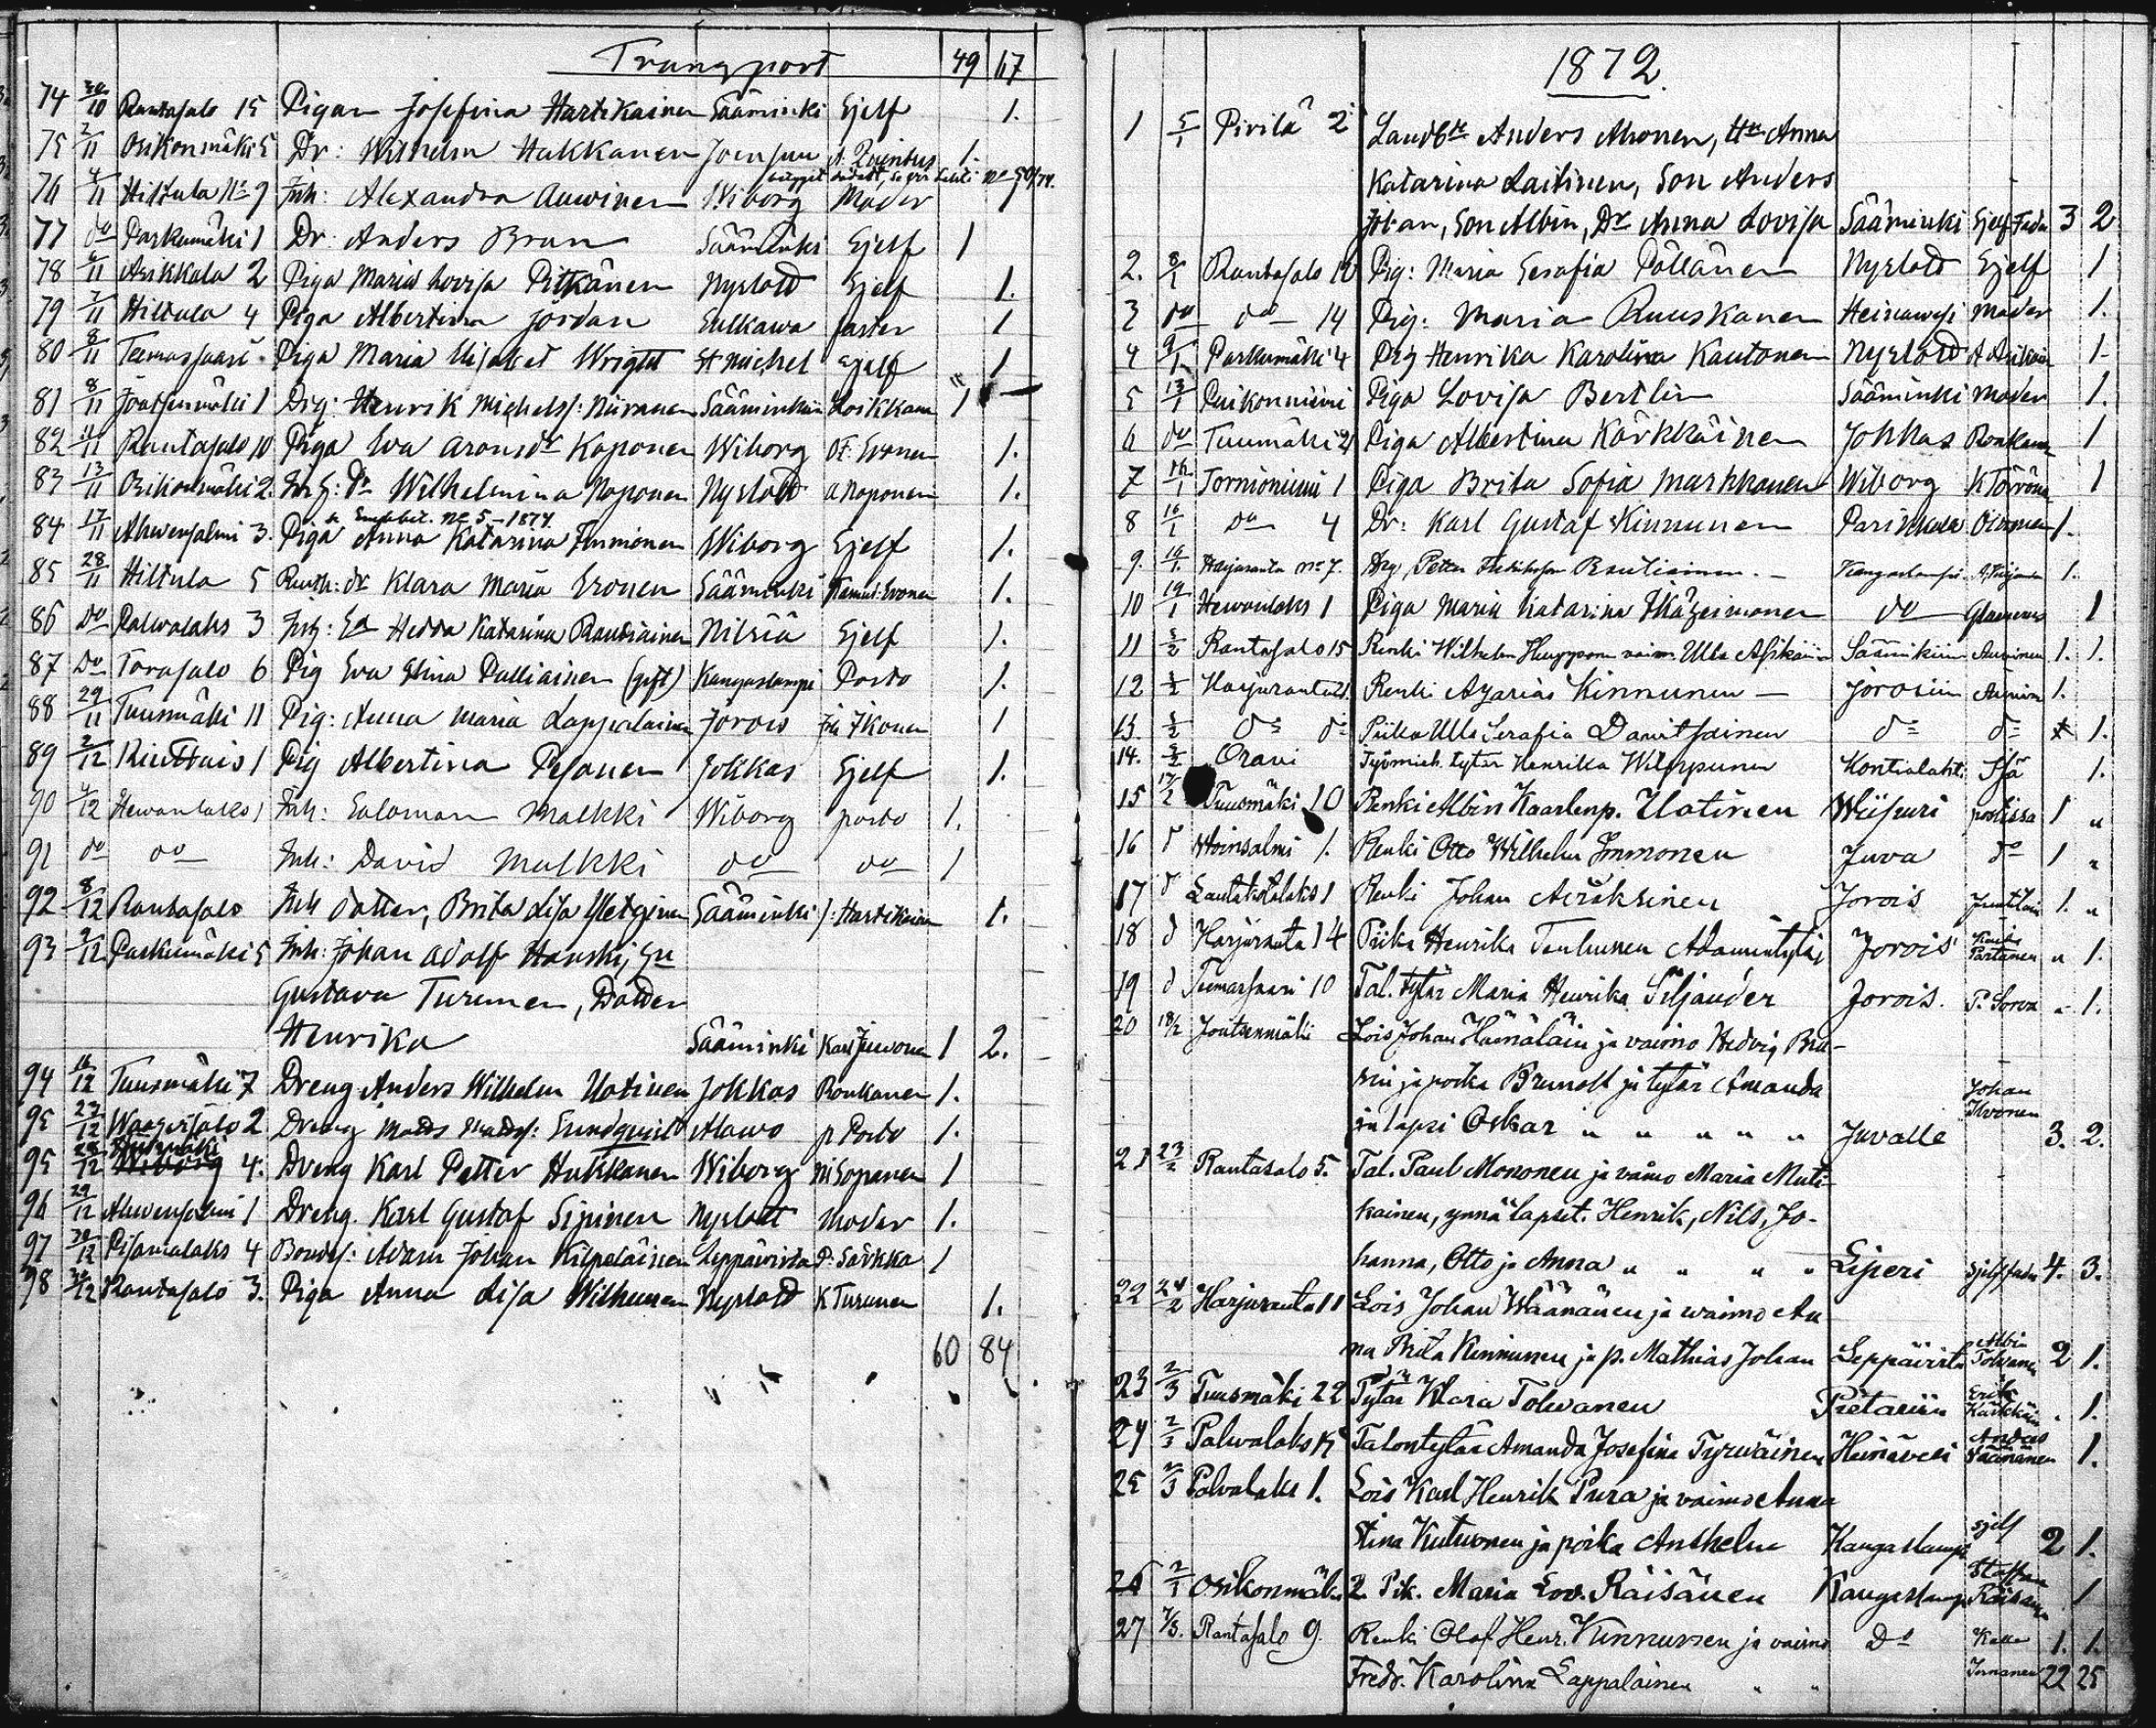 Transport 49 67
74 30/10 Rantasalo 15 Pigan Josefina Hartikainen Sääminki Sjelf 1.
75 2/11 Osikonmäki 5 Dr: Wilhelm Hakkanen Joensuu 1.
76 4/11 Hiltula No 9 Inh: Alexandra Auvinen Wiborg Moder 1
77 do Parkumäki 1 Dr Anders Brun Sääminki Sjelf 1
78 6/11 Asikkala 2 Piga Maria Lovisa Pitkänen Nyslott Sjelf 1.
79 7/11 Hiltula 4 Piga Albertina Jordan Sulkawa faster 1
80 8/11 Teemassaari Piga Maria Elisabet Wright St Michel Sjelf 1
81 8/11 Joutsenmäki 1 Drg: Henrik Michelss: Niiranen Sääminki Loikkanen 1
82 11/11 Rantasalo 10 Piga Eva Aronsdr Kaponen Wiborg Of: Eronen 1.
83 13/11 Osikonmäki 2. Inh: Dr Wilhelmina Naponen Nyslott A Naponen 1.
No 5-1874.
84 17/11 Ahwensalmi 3. Piga Anna Katarina Immonen Wiborg Sjelf 1.
85 28/11 Hiltula 5 dr Klara Maria Eronen Sääminki Eronen 1.
86 Do Palwalaks 3 Inh: Ea Hedda Katarina Rautiainen Nilsiä Sjelf 1.
87 Do Torasalo 6 Pig Eva Stina Pulliainen (gift) Kangaslampi Posto 1.
88 29/11 Tuusmäki 11 Pig: Anna Maria Lappalainen Jorois Joh Ikonen 1
89 2/12 1 Pig Albertina Pesonen Jokkas Sjelf 1.
90 4/12 Hewonlaks 1 Inh: Salomon Malkki Wiborg posto 1.
91 do do Inh: David Malkki do do 1
92 8/12 Rantasalo Inh dotter, Brita Lisa Sääminki J: Hartikainen 1.
93 9/12 Parkumäki 5 Inh: Johan Adolf Hanski, hu
Gustava Turunen, Dotter
Henrika Sääminki Karl Juvonen 1 2.
94 16/12 Tuusmäki 7 Dreng Anders Wilhelm Uotinen Jokkas Ronkanen 1.
95 23/12 Waagersalo 2 Dreng Mats Matss: Sundqvist Alawo p Posto 1.
95 28/12 4. Dreng Karl Petter Hukkanen Wiborg Sopanen 1
96 29/12 Ahwensalmi 1 Dreng. Karl Gustaf Sipinen Nyslott Moder 1.
97 30/12 Pisamalaks 4 Bondes: Adam Johan Kilpeläinen Leppävirta P: Särkka 1
98 30/12 Rantasalo 3. Piga Anna Lisa Wilhunen Nyslott K Turunen 1.
60 84
1872.
1 5/1 Pirilä 2 Landbde Anders Ahonen, Hu Anna
Katarina Laitinen, Son Anders
Johan, Son Albin, Dr Anna Lovisa Sääminki Sjelf Fader 3 2
2. 8/1 Rantasalo 12 Pig: Maria Serafia Pöllänen Nyslott Sjelf 1
3 do do 14 Pig: Maria Ruuskanen Heinäwesi Moder 1.
4 9/1 Parkumäki 4 Pig Henrika Karolina Kautonen Nyslott A Asikain 1
5 13/1 Paikonniemi Piga Lovisa Bertlin Sääminki Moder 1.
6 do Tuusmäki 21 Piga Albertina Kärkkäinen Jokkas Ronkanen 1
7 16/1 Torniöniemi 1 Piga Brita Sofia Markkanen Wiborg K Törrönen 1
8 16/1 do 4 Dr: Karl Gustaf Kinnunen Parikkala 1.
9. 16/1. Harjuranta no 7. Drg Petter Rautiainen Kangaslampi 1.
10 19/1 Hewonlaks 1 Piga Maria Katarina do 1
11 2/2 Rantasalo 15 Renki Wilhelm Huupponen vaim. Ulla Asikainen Sääminkiin Auvinen 1. 1.
12 2/2 Harjuranta Renki Azarias Kinnunen Joroisiin Auvinen 1.
13. 2/2 do do Piika Ulla Serafia Danitsainen do do 1.
14. 2/2 Oravi Työmieh. tytär Henrika Wilppunen Kontiolahti 1.
15 17/2 Tuusmäki 10 Renki Albin Kaarlenp. Uotinen Wiipuri postissa 1 „
16 d Woinsalmi 1. Renki Otto Wilhelm Immonen Juva do 1 „
17 d Lautakotalaks 1 Renki Johan Aeräksinen Jorois Juutilain 1. „
18 d Harjuranta 14 Piika Henrika Tanhunen Adamintytär Jorois Partanen „ 1.
19 d Teemassaari 10 Tal. tytär Maria Henrika Siljander Jorois. P. Sorva „ 1.
20 18/2 Joutsenmäki Lois Johan Hämäläin ja vaimo Hedvig Bru-
nin ja poika Brunolt ja tytär Amanda
lapsi Oskar „ „ „ „ „ Juvalle Johan Ikonen 3. 2.
21 23/2 Rantasalo 5. Tal. Paul Mononen ja vaimo Maria Muti-
kainen, ynnä lapset. Henrik, Nils, Jo-
hanna, Otto ja Anna „ „ „ „ Liperi Sjelf fader 4. 3.
22 24/2 Harjuranta 11 Lois Johan Wäänänen ja waimo An
na Brita Kinnunen ja p. Mathias Johan Leppävirta Albin Tolvanen 2 1.
23 2/3 Tuusmäki 22 Tytär Klara Tolwanen Pietariin Erik Kärkkäin „ 1.
24 2/3 Palwalaks 15 Talontytär Amanda Josefina Tyrwäinen Heinävesi Anders Väänänen 1.
25 2/3 Palvalaks 1. Lois Karl Henrik Pura ja vaimo Anna
Stina Kutvonen ja poika Anshelm Kangaslampi sjelf 2 1.
26 2/3 Osikonmäki 2 Pik. Maria Lov. Räisänen Kangaslampi Staffan Räisänen 1
27 7/3. Rantasalo 9. Renki Olof Henr. Kinnunen ja vaimo Do Kalle 1. 1.
Fredr. Karolina Lappalainen „ „ Immonen 22 25